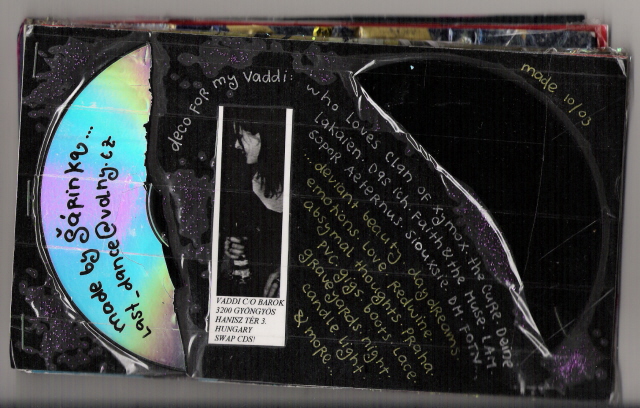 made by Šárinka...
last_dance@volny.cz
deco FOR my Vaddi:
who loves clan of xymox. the cure. Deine
Lakaien. Das ich. Faith & the Muse. LAM.
SOPOR AETERNUS. SIOUXSIE. DM. FOTN.
... deviant beauty. daydreams.
emotions. love. Redwine.
abysmal thoughts. Praha.
PVC. gigs. boots. Lace.
graveyards. night.
candle light.
& more...
made 10/03
VADDI C/O BARÓK
3200 GYÖNGYÖS
HANISZ TÉR 3.
HUNGARY
SWAP CDS!